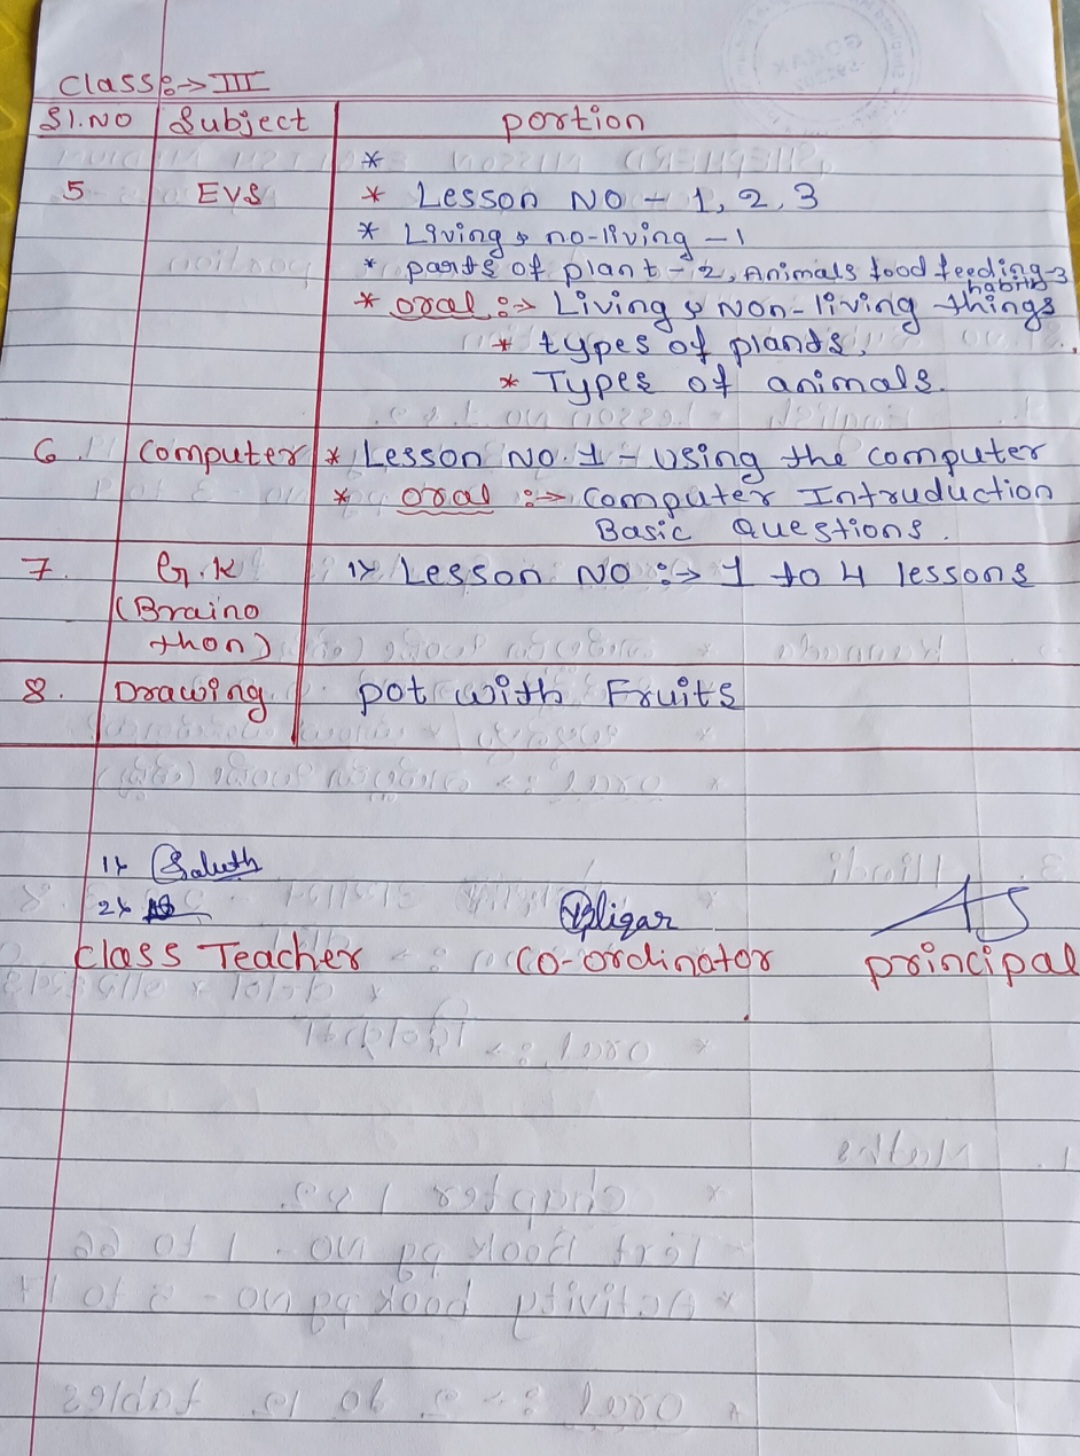 Class :→ III
Sl.NO Subject portion
*
5 EVS * Lesson NO - 1, 2, 3
* Living & no-living - 1
* parts of plant - 2, Animals food feeding-3
habits
* oral :→ Living & Non-living things
* types of plants.
* Types of animals.
6. Computer * Lesson No. 1 - Using the computer
* oral :→ Computer Intruduction
Basic Questions.
7. G.K 1) Lesson NO :→ 1 to 4 lessons
(Braino
thon)
8. Drawing pot with Fruits
1)
2)
Class Teacher co-ordinator principal